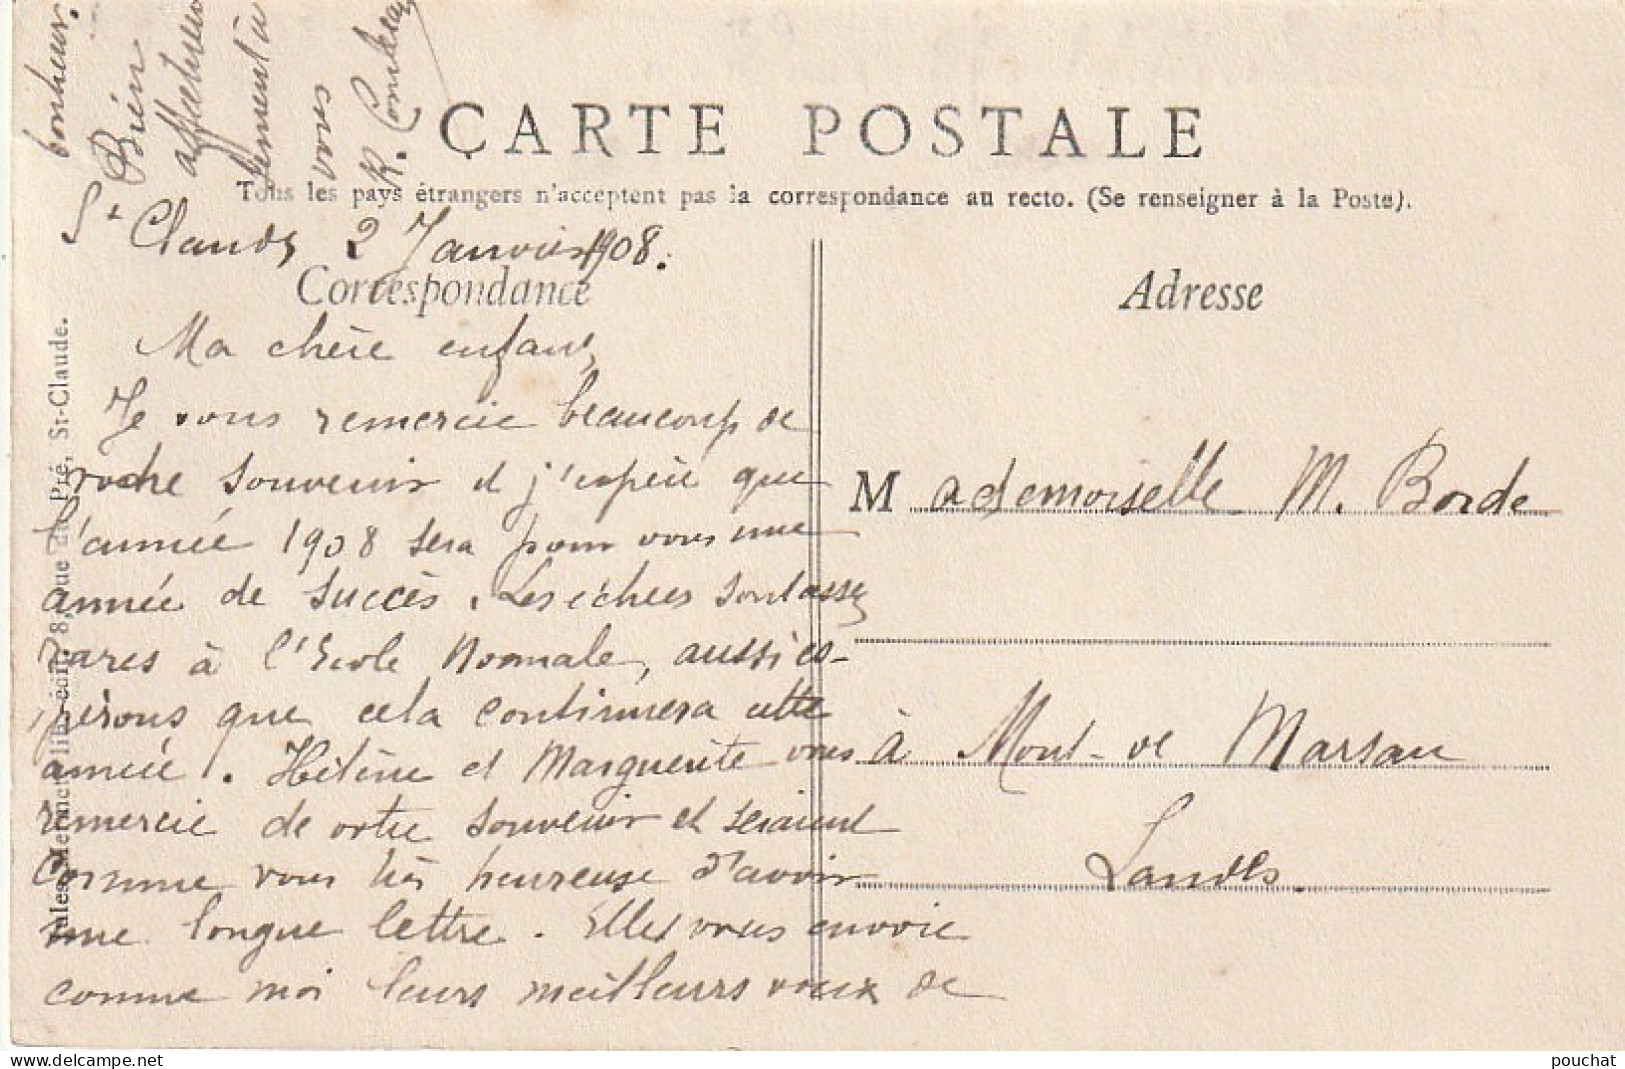 CARTE POSTALE
Tous les pays étrangers n'acceptent pas la correspondance au recto. (Se renseigner à la Poste).
St Claude 2 Janvier 1908.
Correspondance
Ma chère enfant,
Je vous remercie beaucoup de
votre souvenir et j'espère que
l'année 1908 sera pour vous une
année de succès. Les échecs sont assez
rares à l'Ecole Normale, aussi es-
pérons que cela continuera cette
année. Hélène et Marguerite vous
remercie de votre souvenir et seraient
comme vous très heureuse d'avoir
une longue lettre. Elles vous envoie
comme moi leurs meilleurs vœux de
bonheur.
Bien
affectueu
sement à
vous
R.
Adresse
Mademoiselle M. Borde
à Mont-de Marsan
Landes.
Jules Mermet, libr.-édit. 8, rue du Pré, St-Claude.
pouchat